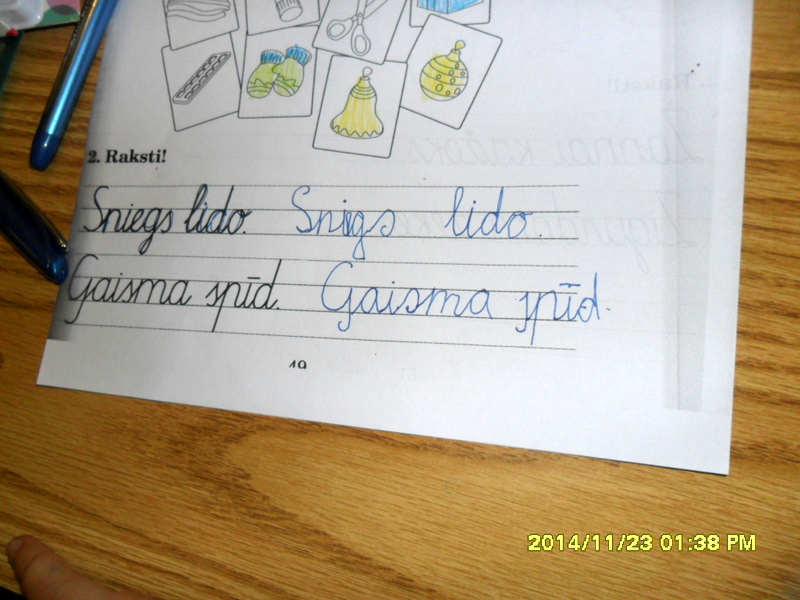 2. Raksti!
Sniegs lido. Snigs lido.
Gaisma spīd. Gaisma spīd.
2014/11/23 01:38 PM